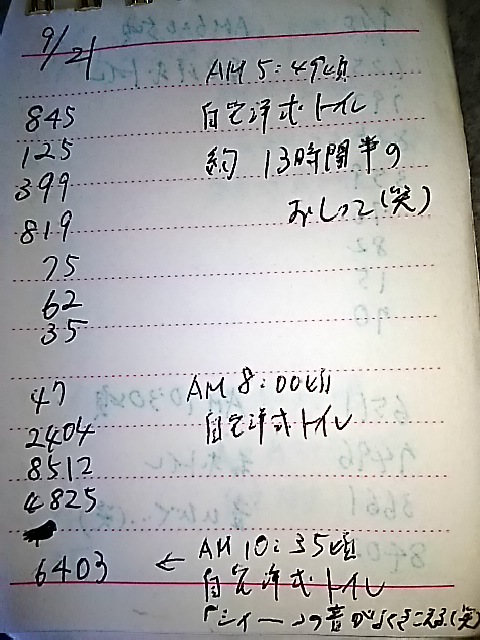 9/21
AM 5:49頃
845 自宅洋式トイレ
125 約 13時間半の
399
819 おしっこ(笑)
75
62
35
47 AM 8:00頃
2404 自宅洋式トイレ
8512
4825
6403 ← AM 10:35頃
自宅洋式トイレ
「シィーーーの音がよくきこえる(笑)